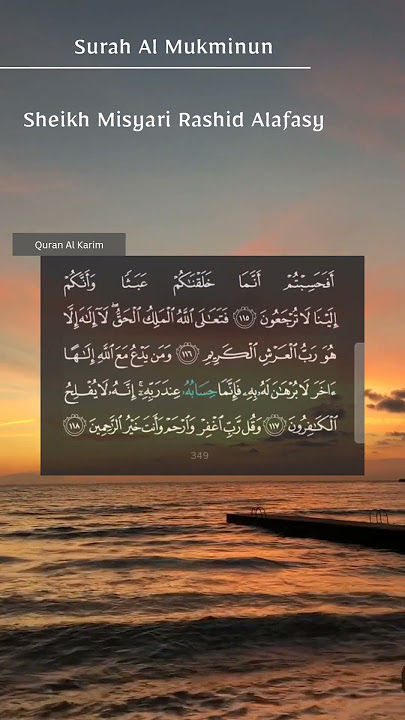 Surah Al Mukminun
Sheikh Misyari Rashid Alafasy
Quran Al Karim
أَفَحَسِبْتُمْ أَنَّمَا خَلَقْنَٰكُمْ عَبَثًا وَأَنَّكُمْ
إِلَيْنَا لَا تُرْجَعُونَ ١١٥ فَتَعَٰلَى ٱللَّهُ ٱلْمَلِكُ ٱلْحَقُّ ۖ لَآ إِلَٰهَ إِلَّا
هُوَ رَبُّ ٱلْعَرْشِ ٱلْكَرِيمِ ١١٦ وَمَن يَدْعُ مَعَ ٱللَّهِ إِلَٰهًا
ءَاخَرَ لَا بُرْهَٰنَ لَهُۥ بِهِۦ فَإِنَّمَا حِسَابُهُۥ عِندَ رَبِّهِۦٓ ۚ إِنَّهُۥ لَا يُفْلِحُ
ٱلْكَٰفِرُونَ ١١٧ وَقُل رَّبِّ ٱغْفِرْ وَٱرْحَمْ وَأَنتَ خَيْرُ ٱلرَّٰحِمِينَ ١١٨
349